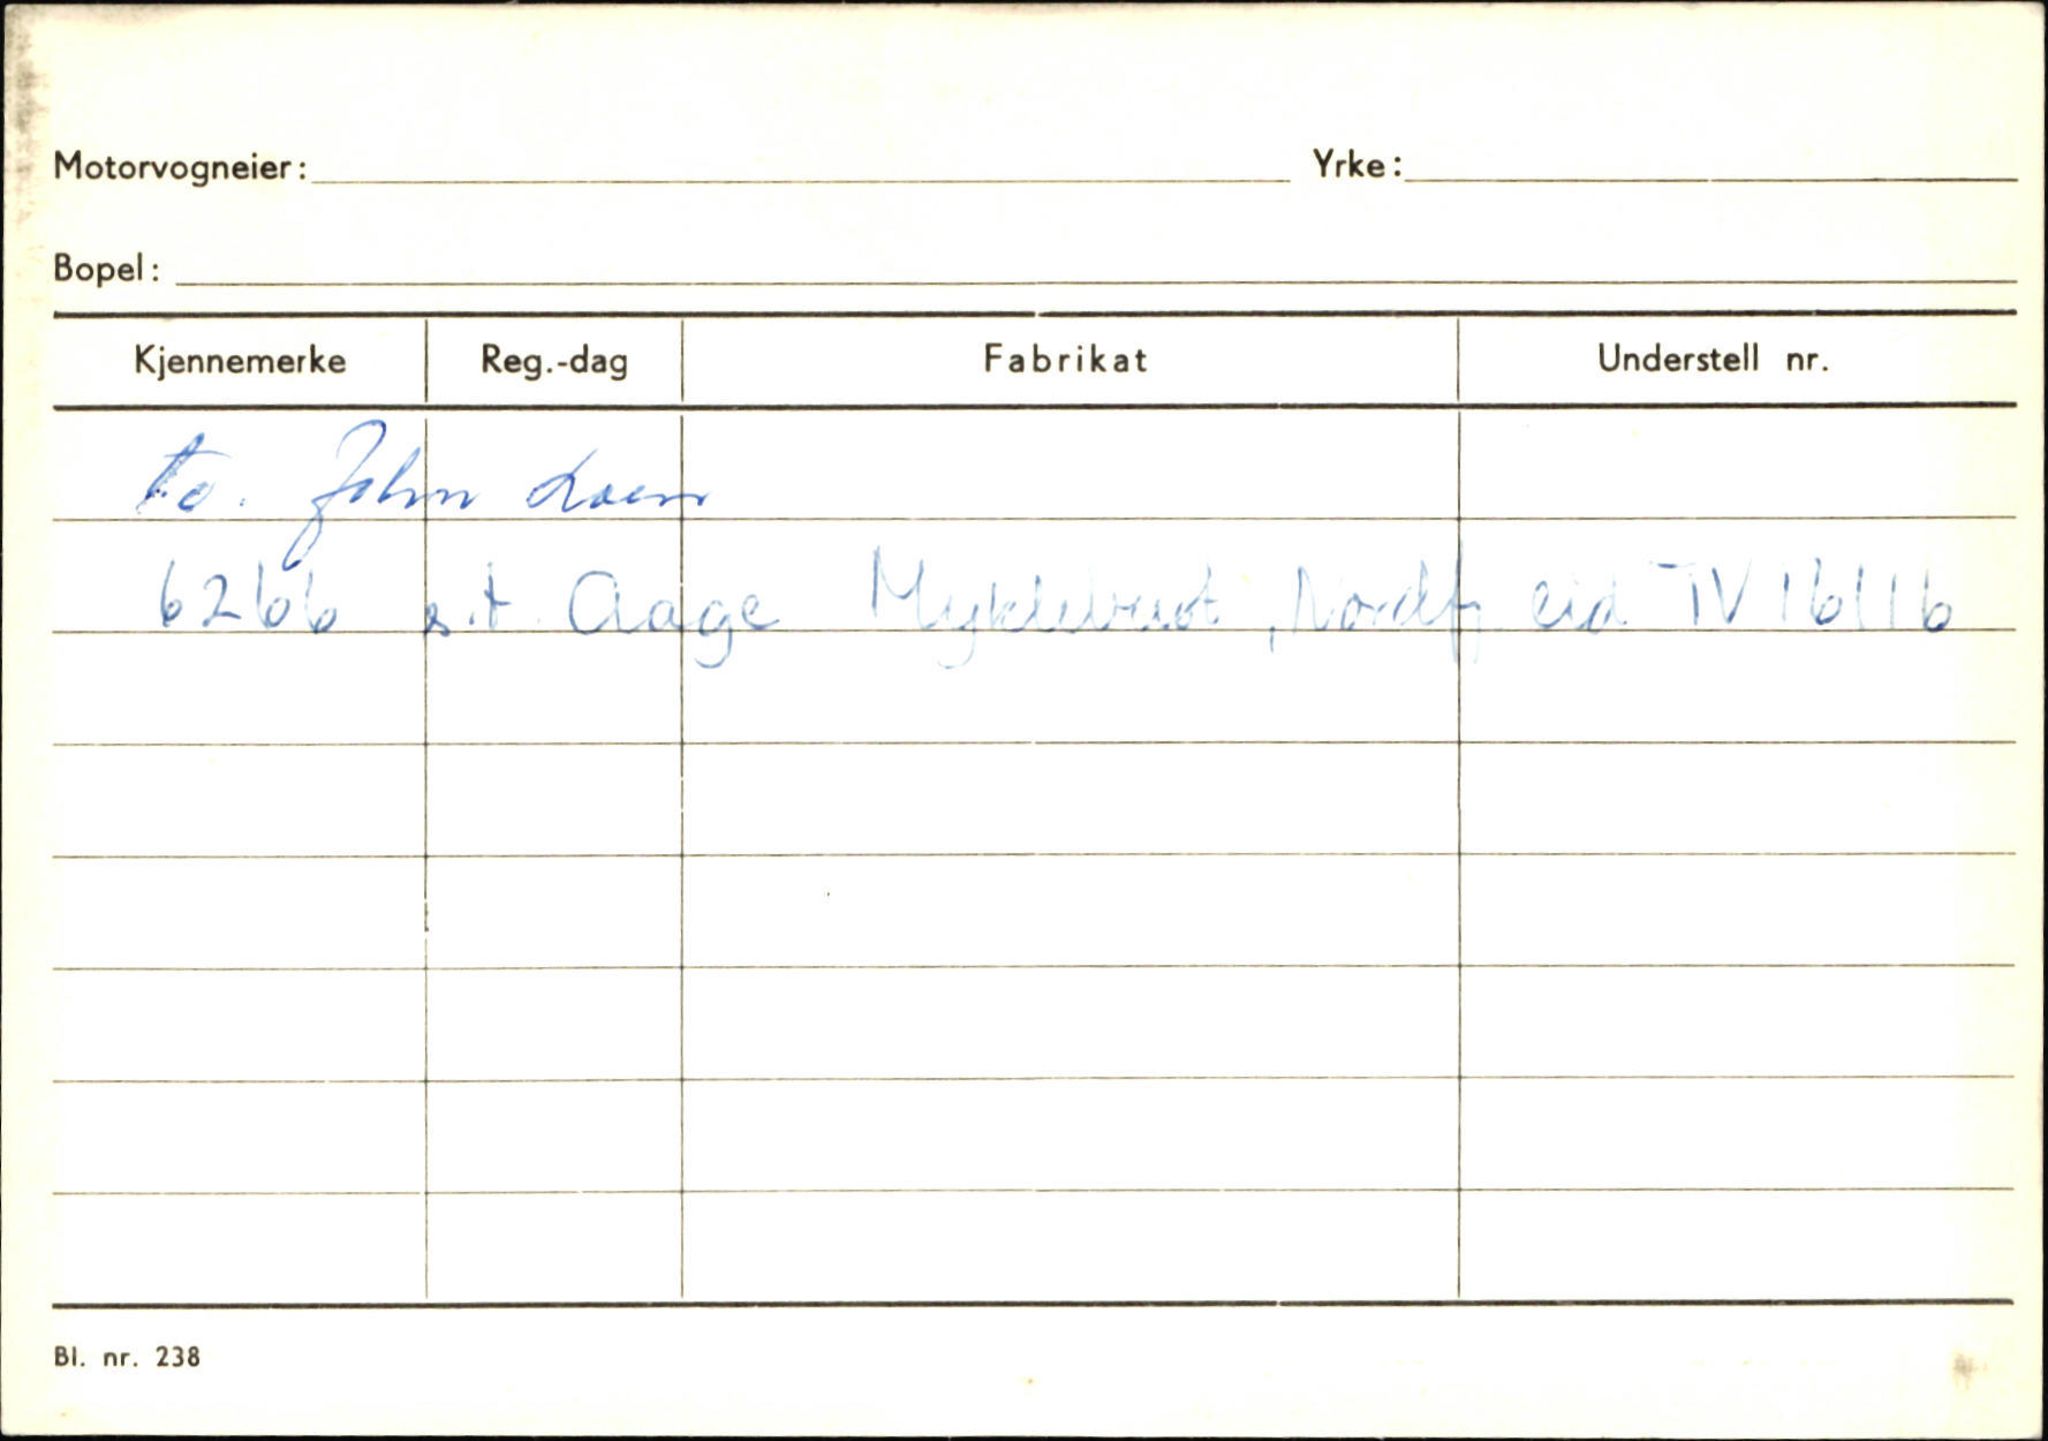 Motorvogneier: Yrke:
Bopel:
Kjennemerke Reg.-dag Fabrikat Understell nr.
to. John Loen
6266 s.t. Aage Myklebust, Nordfj. eid TV 16116
Bl. nr. 238